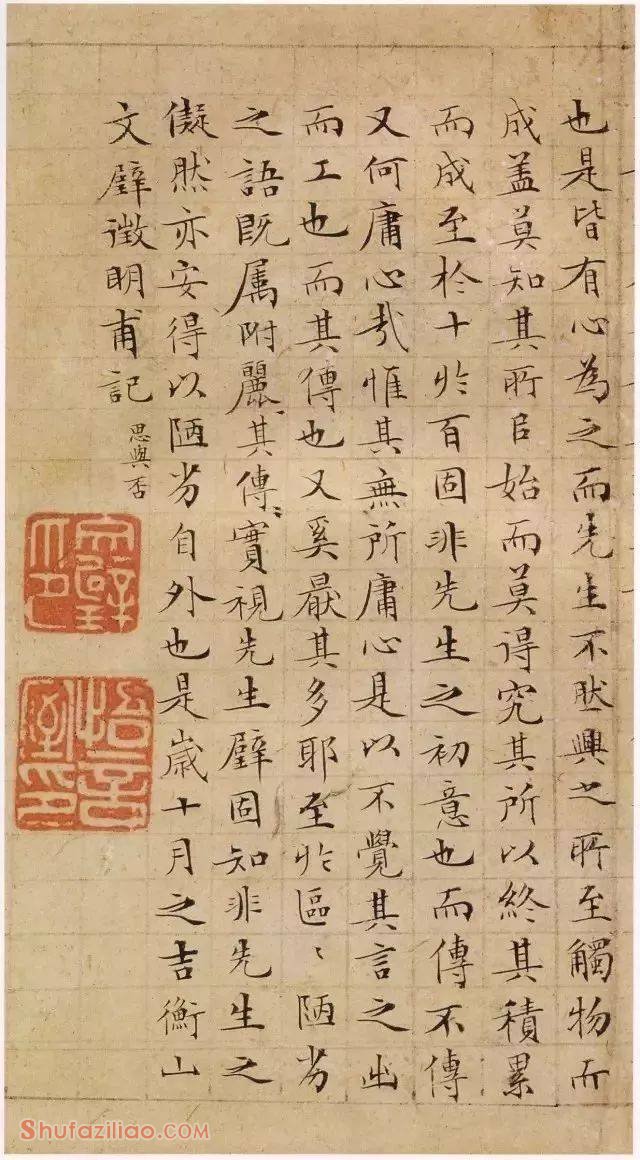 也是皆有心為之而先生不然興之所至觸物而
成盖莫知其所自始而莫得究其所以終其積累
而成至於十於百固非先生之初意也而傳不傳
又何庸心哉惟其無所庸心是以不覺其言之出
而工也而其傳也又奚厭其多耶至於區〻陋劣
之語既屬附麗其傳〻實視先生璧固知非先生之
儗然亦安得以陋劣自外也是歲十月之吉衡山
文璧徵明甫記
文璧印
悟言室印
Shufaziliao.com